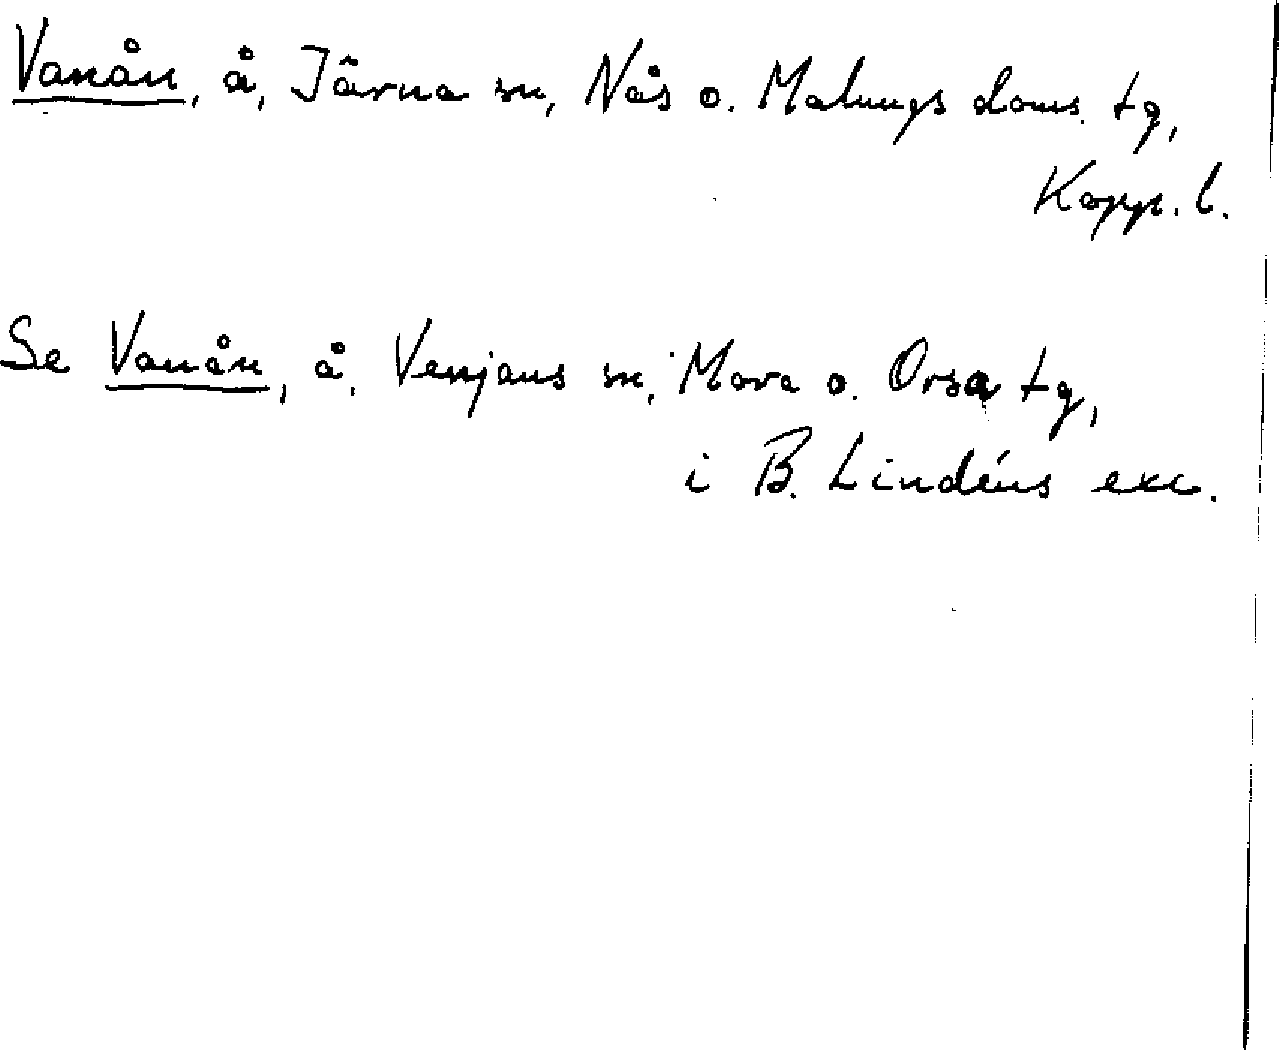 Vanån, å, Järna sn, Nås o. Malungs doms. tg,
Kopp. l.
Se Vanån, å, Venjans sn, Mora o. Orsa tg,
i B. Lindéns exc.